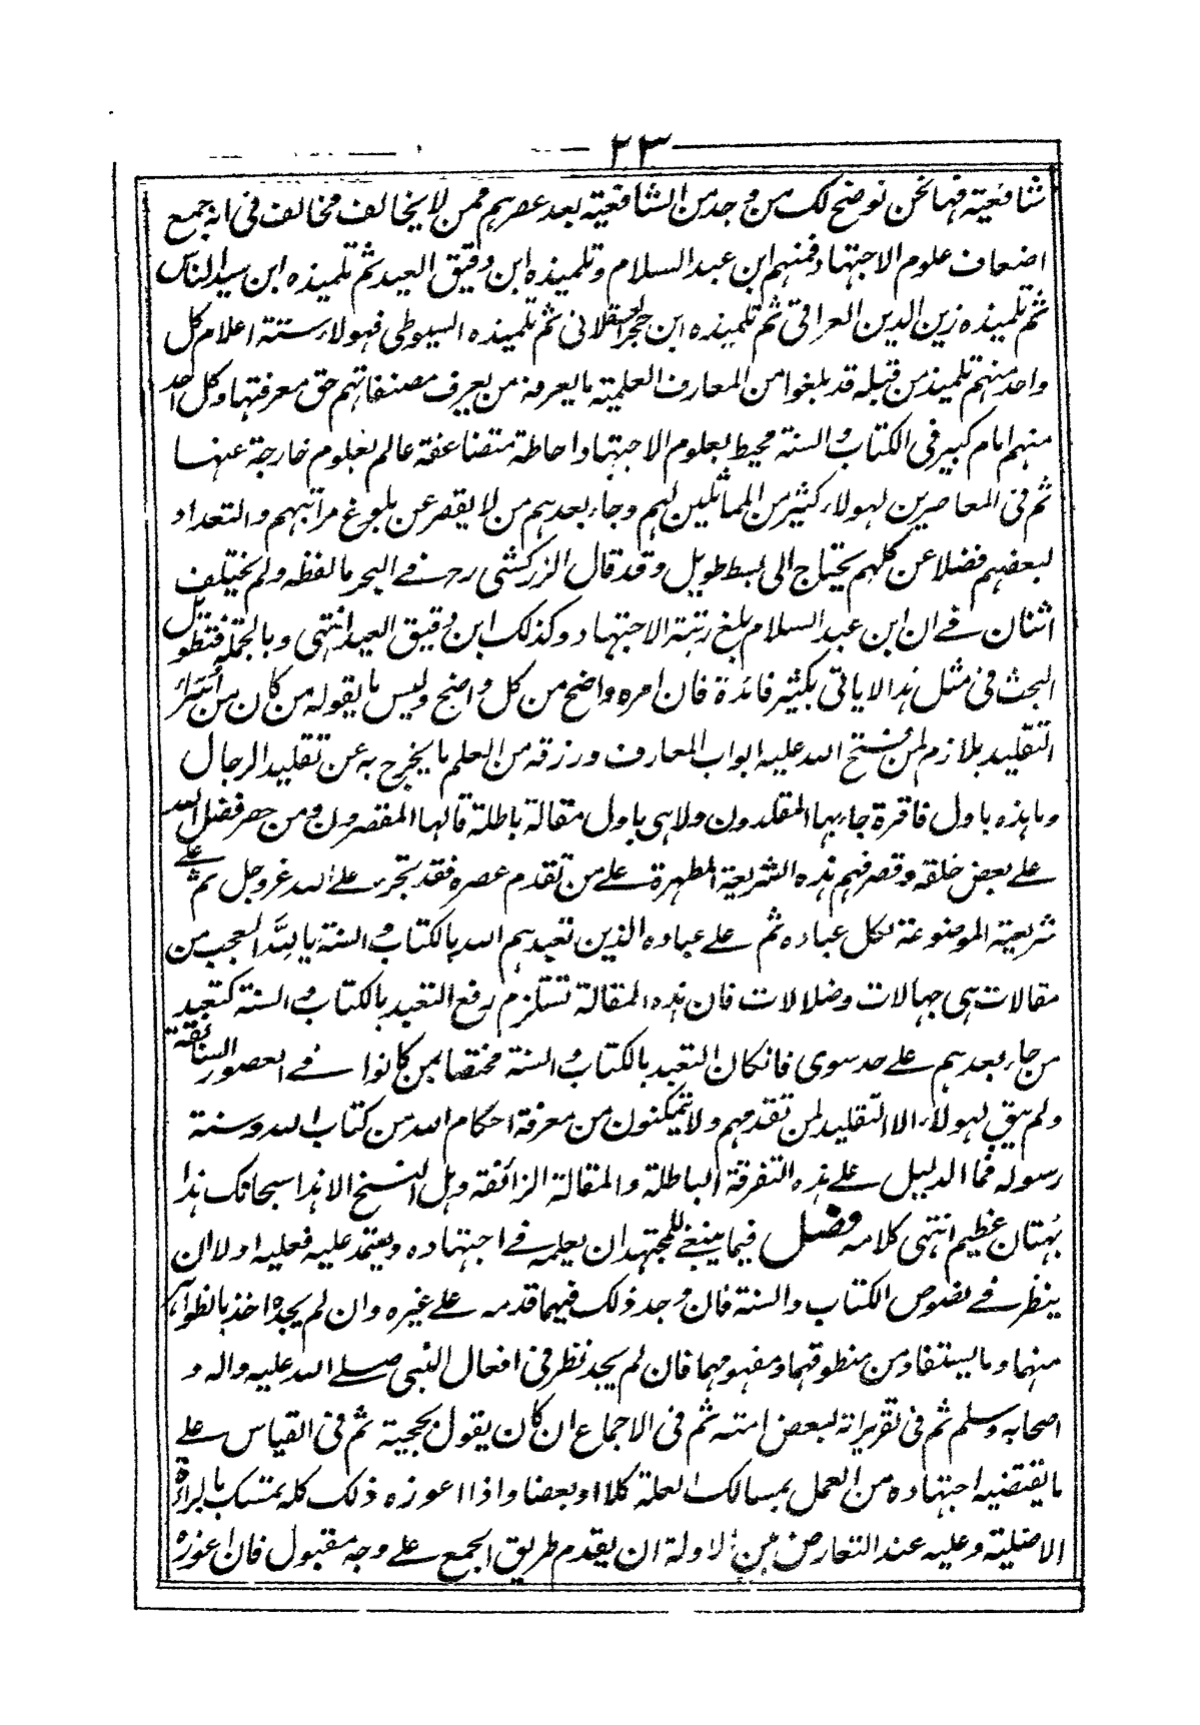 ٢٣
شافعية فها نحن نوضح لك من وجد من الشافعية بعد عصرهم ممن لا يخالف مخالف فى انه جمع
اضعاف علوم الاجتهاد فمنهم ابن عبد السلام وتلميذه ابن دقيق العيد ثم تلميذه ابن سيد الناس
ثم تلميذه زين الدين العراقى ثم تلميذه ابن حجر العسقلانى ثم تلميذه السيوطى فهولاء ستة اعلام كل
واحد منهم تلميذ من قبله قد بلغوا من المعارف العلمية ما يعرفه من يعرف مصنفاتهم حق معرفتها وكل احد
منهم امام كبير فى الكتاب والسنة محيط بعلوم الاجتهاد احاطة متضاعفة عالم بعلوم خارجة عنها
ثم فى المعاصرين لهولاء كثير من المماثلين لهم وجاء بعدهم من لا يقصر عن بلوغ مراتبهم والتعداد
لبعضهم فضلا عن كلهم يحتاج الى بسط طويل وقد قال الزركشى رح فى البحر ما لفظه ولم يختلف
اثنان فى ان ابن عبد السلام بلغ رتبة الاجتهاد وكذلك ابن دقيق العيد انتهى وبالجملة فتطويل
البحث فى مثل هذا لا ياتى بكثير فائدة فان امره واضح من كل واضح وليس ما يقوله من كان من اسراء
التقليد بلازم لمن فتح الله عليه ابواب المعارف ورزقه من العلم ما يخرج به عن تقليد الرجال
وما هذه باول فاقرة جاء بها المقلدون ولا هى باول مقالة باطلة قالها المقصرون ومن حصر فضل الله
على بعض خلقه وقصر فهم هذه الشريعة المطهرة على من تقدم عصره فقد تجرء على الله عز وجل ثم على
شريعته الموضوعة لكل عباده ثم على عباده الذين تعبدهم الله بالكتاب والسنة يا لله العجب من
مقالات هى جهالات وضلالات فان هذه المقالة تستلزم رفع التعبد بالكتاب والسنة كتعبد
من جاء بعدهم على حد سوى فان كان التعبد بالكتاب والسنة مختصا بمن كانوا فى العصور السابقة
ولم يبق لهولاء الا التقليد لمن تقدمهم ولا يتمكنون من معرفة احكام الله من كتاب الله وسنة
رسوله فما الدليل على هذه التفرقة الباطلة والمقالة الزائفة وهل النسخ الا هذا سبحانك هذا
بهتان عظيم انتهى كلامه فصل فيما ينبغى للمجتهد ان يعلمه فى اجتهاده ويعتمد عليه فعليه اولا ان
ينظر فى نصوص الكتاب والسنة فان وجد ذلك فيهما قدمه على غيره وان لم يجده اخذ بالظواهر
منهما وما يستفاد من منطوقهما ومفهومهما فان لم يجد نظر فى افعال النبى صلى الله عليه واله و
اصحابه وسلم ثم فى تقريراته لبعض امته ثم فى الاجماع ان كان يقول بحجيته ثم فى القياس على
ما يقتضيه اجتهاده من العمل بمسالك العلة كلا او بعضا واذا اعوزه ذلك كله تمسك بالبراءة
الاصلية وعليه عند التعارض بين الادلة ان يقدم طريق الجمع على وجه مقبول فان اعوزه